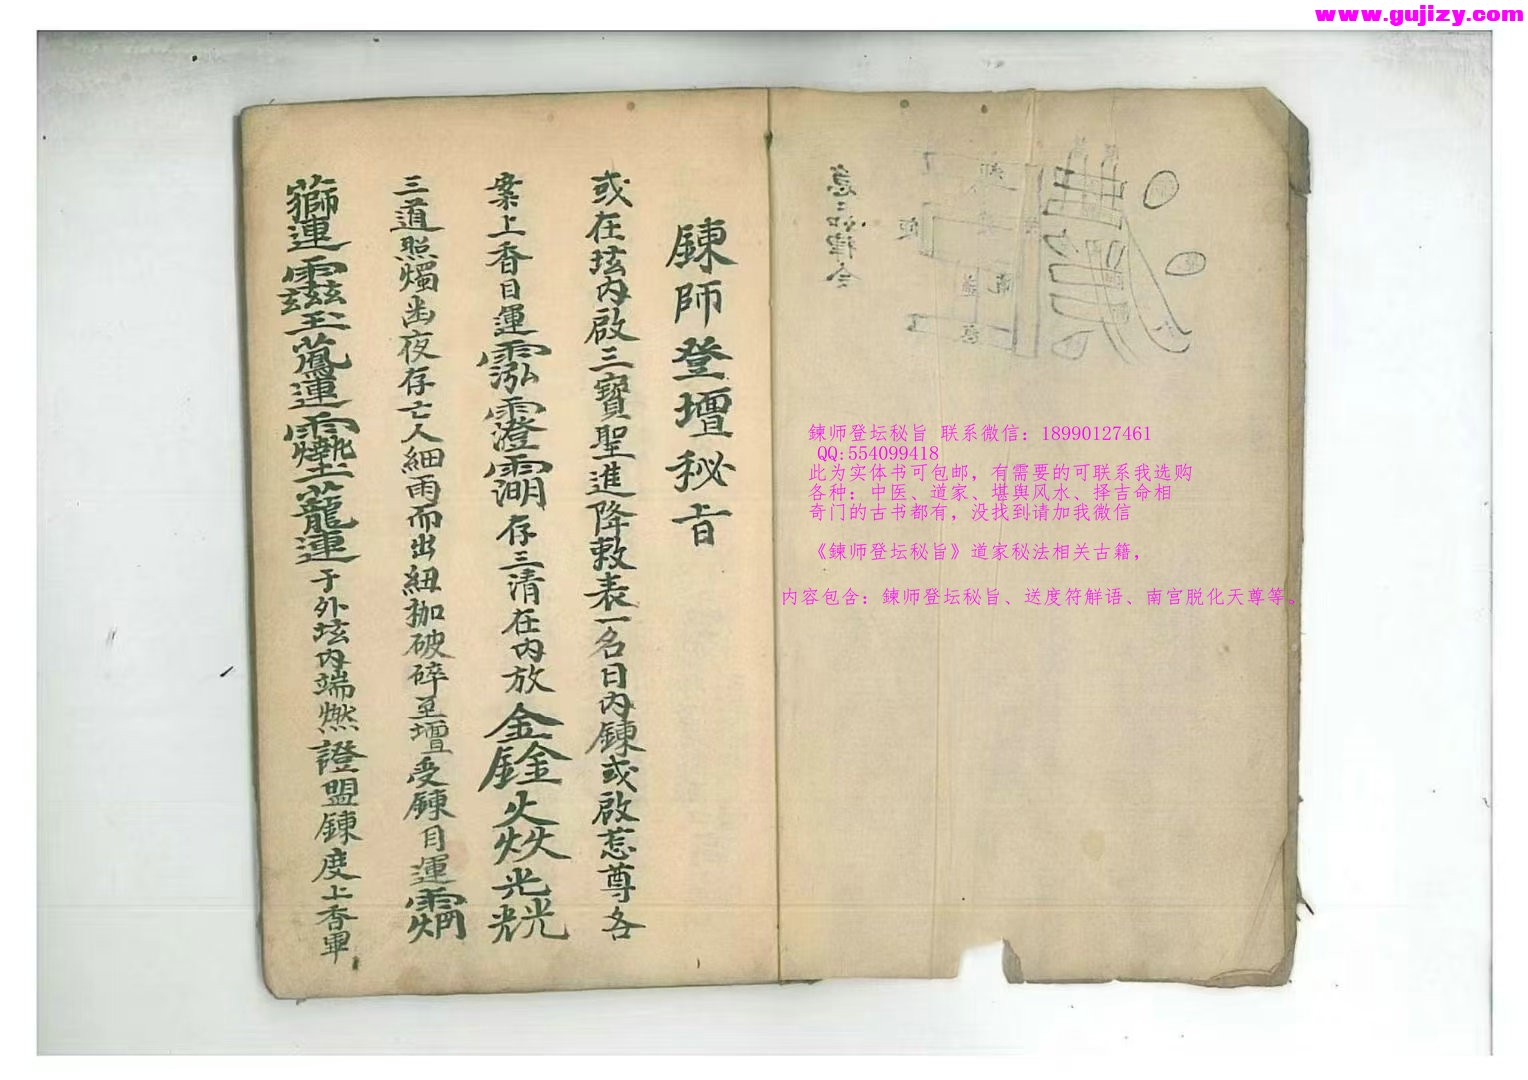 www.gujizy.com
鍊師登壇秘旨
或在玹內啟三寶聖進降敕表一名曰內鍊或啟惹尊各
案上香目運存三清在內放金鍂火炏光
三道照燭幽夜存亡人細雨而出紐枷破碎至壇受鍊目運
連運連于外玹內端燃證盟鍊度上香畢
急〻如律令
鍊师登坛秘旨 联系微信: 18990127461
QQ:554099418
此为实体书可包邮, 有需要的可联系我选购
各种: 中医、道家、堪舆风水、择吉命相
奇门的古书都有, 没找到请加我微信
《鍊师登坛秘旨》道家秘法相关古籍,
内容包含: 鍊师登坛秘旨、送度符解语、南宫脱化天尊等。